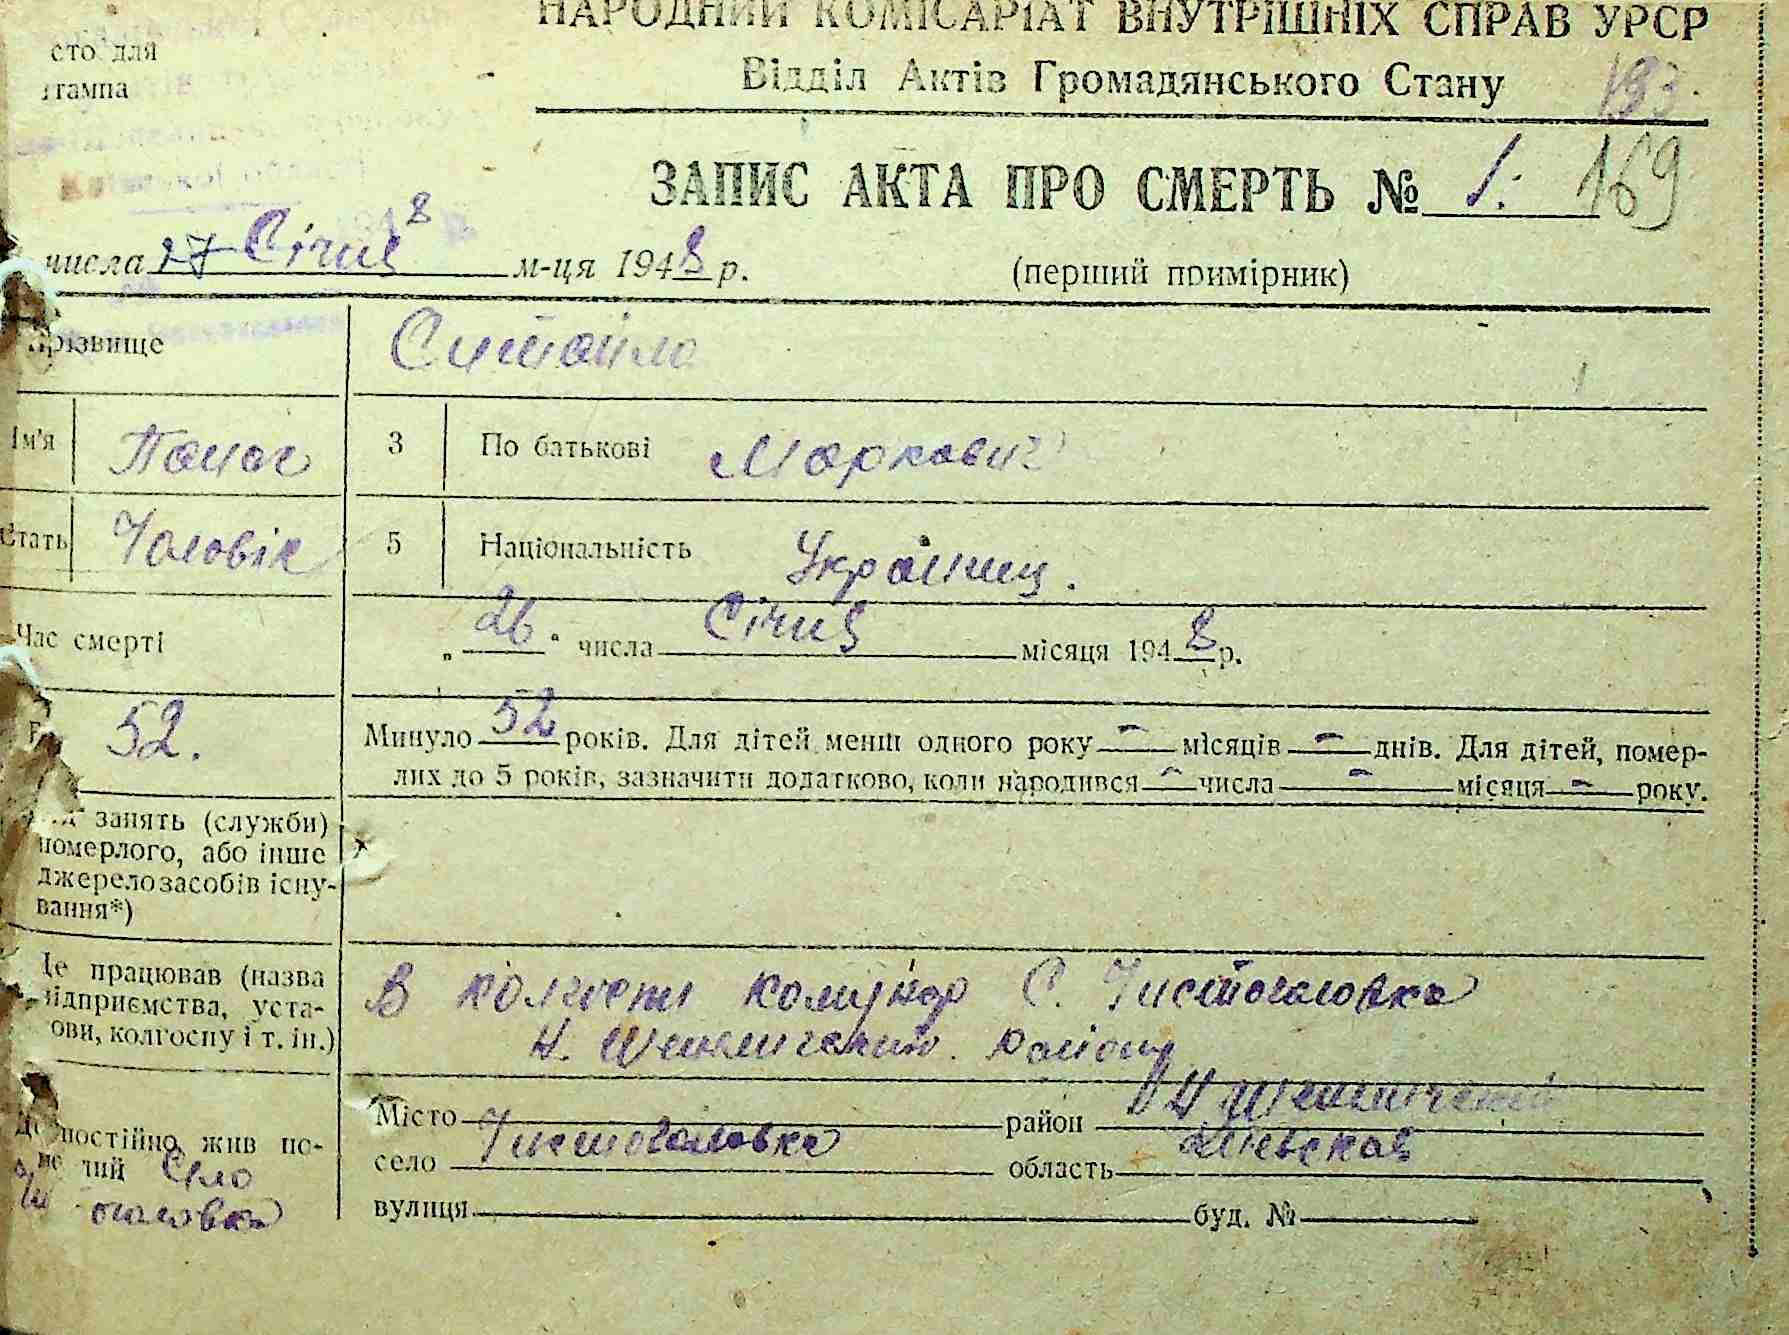 НАРОДНИЙ КОМІСАРІАТ ВНУТРІШНІХ СПРАВ УРСР
сто для
тампа
Відділ Актів Громадянського Стану 193.
ЗАПИС АКТА ПРО СМЕРТЬ № 1. 169
числа 27 Січня 8 м-ця 1948 р.
(перший примірник)
Прізвище Ситайло
Ім'я Панас 3 По батькові Маркович
Стать Чоловік 5 Національність Українец.
Час смерті „26“ числа Січня місяця 1948 р.
52. Минуло 52 років. Для дітей менш одного року – місяців – днів. Для дітей, помер-
лих до 5 років, зазначити додатково, коли народився – числа – місяця – року.
занять (служби)
померлого, або інше
джерело засобів існу-
вання*)
Де працював (назва
підприємства, уста-
ови, колгоспу і т. ін.)
В колгоспи комунар С. Чистогаловка
Н. Шепелическ. району
постійно жив по-
лий Село
оголовка
Місто район Н Шепелический
село Чистоголовка область
вулиця буд. №